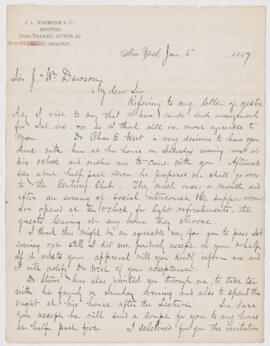 IMPORTING
BROADWAY.
New York Jan 5 1889
Sir J. Wm Dawson
My dear Sir
Refering to my letter of yester
day I wish to say that I have made
Sat. eve. so as I think will be more agreeable to
you. Dr Chas E West has a very desirous to have you
dine with him at his home on Saturday evening next at
six o'clock and wishes me to come with you. After
about half past seven he proposes we shall go over
to the Century Club. They meet once a month and
after an evening of social intercourse the supper room
is opened at ten o'clock for light refreshments, the
guests leaving at any hour they choose.
I think this might be an agreeable way for you to pass Sat
evening yet still I did not positively accept on your behalf
If it meets your approval will you kindly inform me and
I will notify Dr West of your acceptance.
Dr has also invited you through me, to take tea
with his family on Sunday evening and also to spend the
night at his house after the lecture. In case
you accept he will send a coupe for you to any house
at half past five. I declined for you the invitation